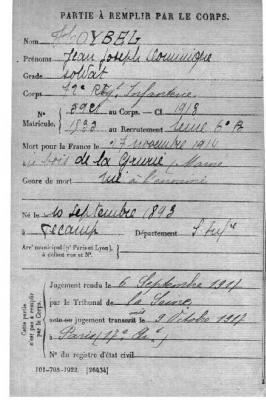 PARTIE À REMPLIR PAR LE CORPS.
Nom OYBEL
Prénoms Jean Joseph Dominique
Grade Soldat
Corps 72e Rgt Infanterie
N° 8921 au Corps. — Cl 1913
Matricule. 1833 au Recrutement Seine 6e B
Mort pour la France le 27 novembre 1914
bois de la Grurie, Marne
Genre de mort tué à l'ennemi
Né le 10 septembre 1893
à Fécamp Département S. Infre
Arrt municipal (pr Paris et Lyon),
à défaut rue et N°.
Cette partie
n'est pas à remplir
par le Corps.
Jugement rendu le 6 Septembre 1917
par le Tribunal de la Seine
acte ou jugement transcrit le 9 Octobre 1917
à Paris (17e Art)
N° du registre d'état civil
101-708-1922. [26434]